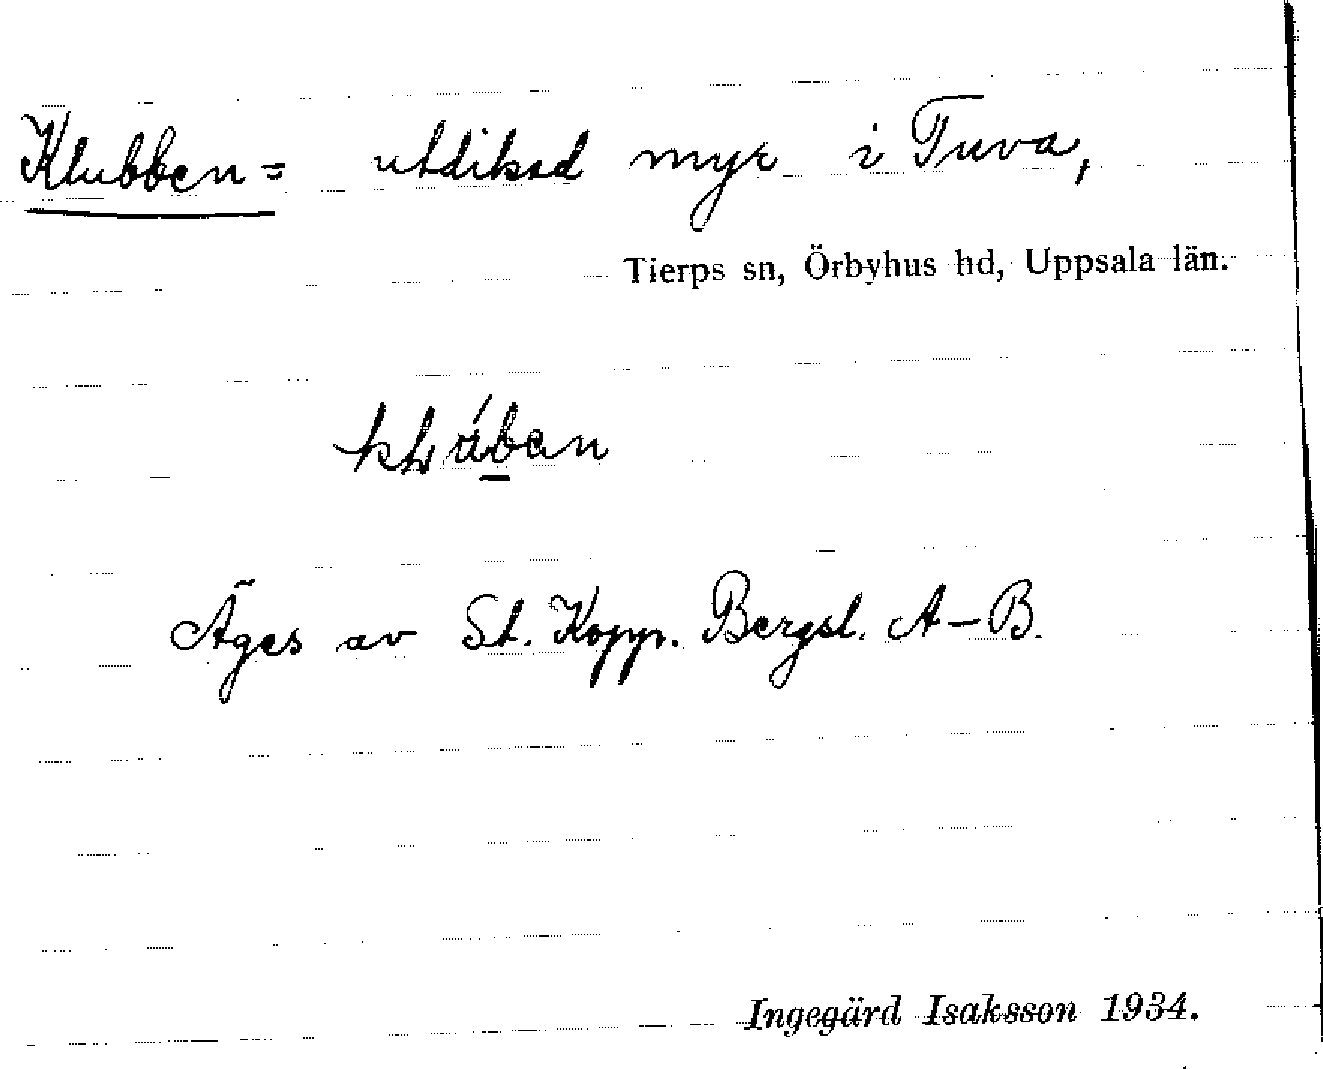 Klubben = utdikad myr i Tuva,
Tierps sn, Örbyhus hd, Uppsala län.
Äges av St. Kopp. Bergsl. A–B.
Ingegärd Isaksson 1934.